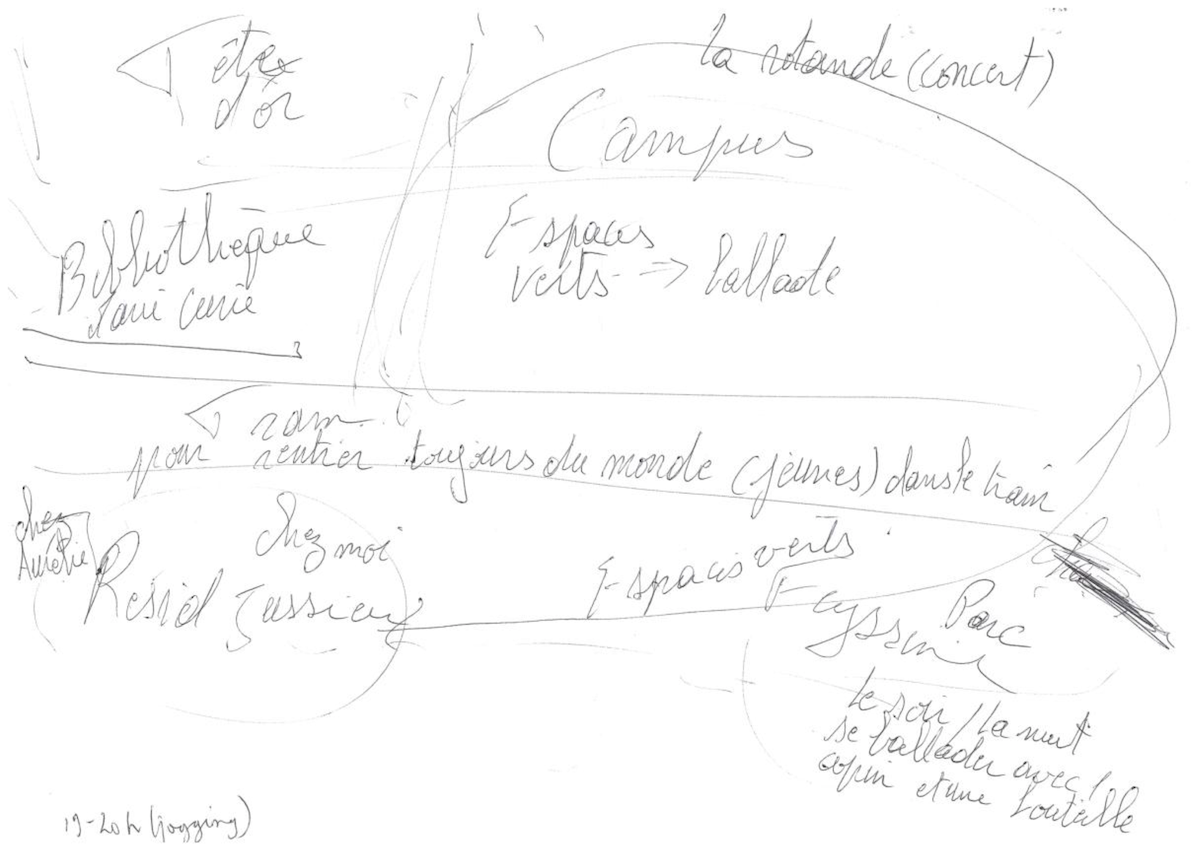 la rotande (concert)
tex
d'or
Campus
Bibliothèque
Marie Curie
Espaces
verts → ballade
ram
pour rentrer toujours du monde (jeunes) dans le train
chez
Aurélie
chez moi
Résid Jussieu
Espaces verts
Parc
Feyssine
le soir / la nuit
se ballader avec 1
copin et une bouteille
19-20h (jogging)